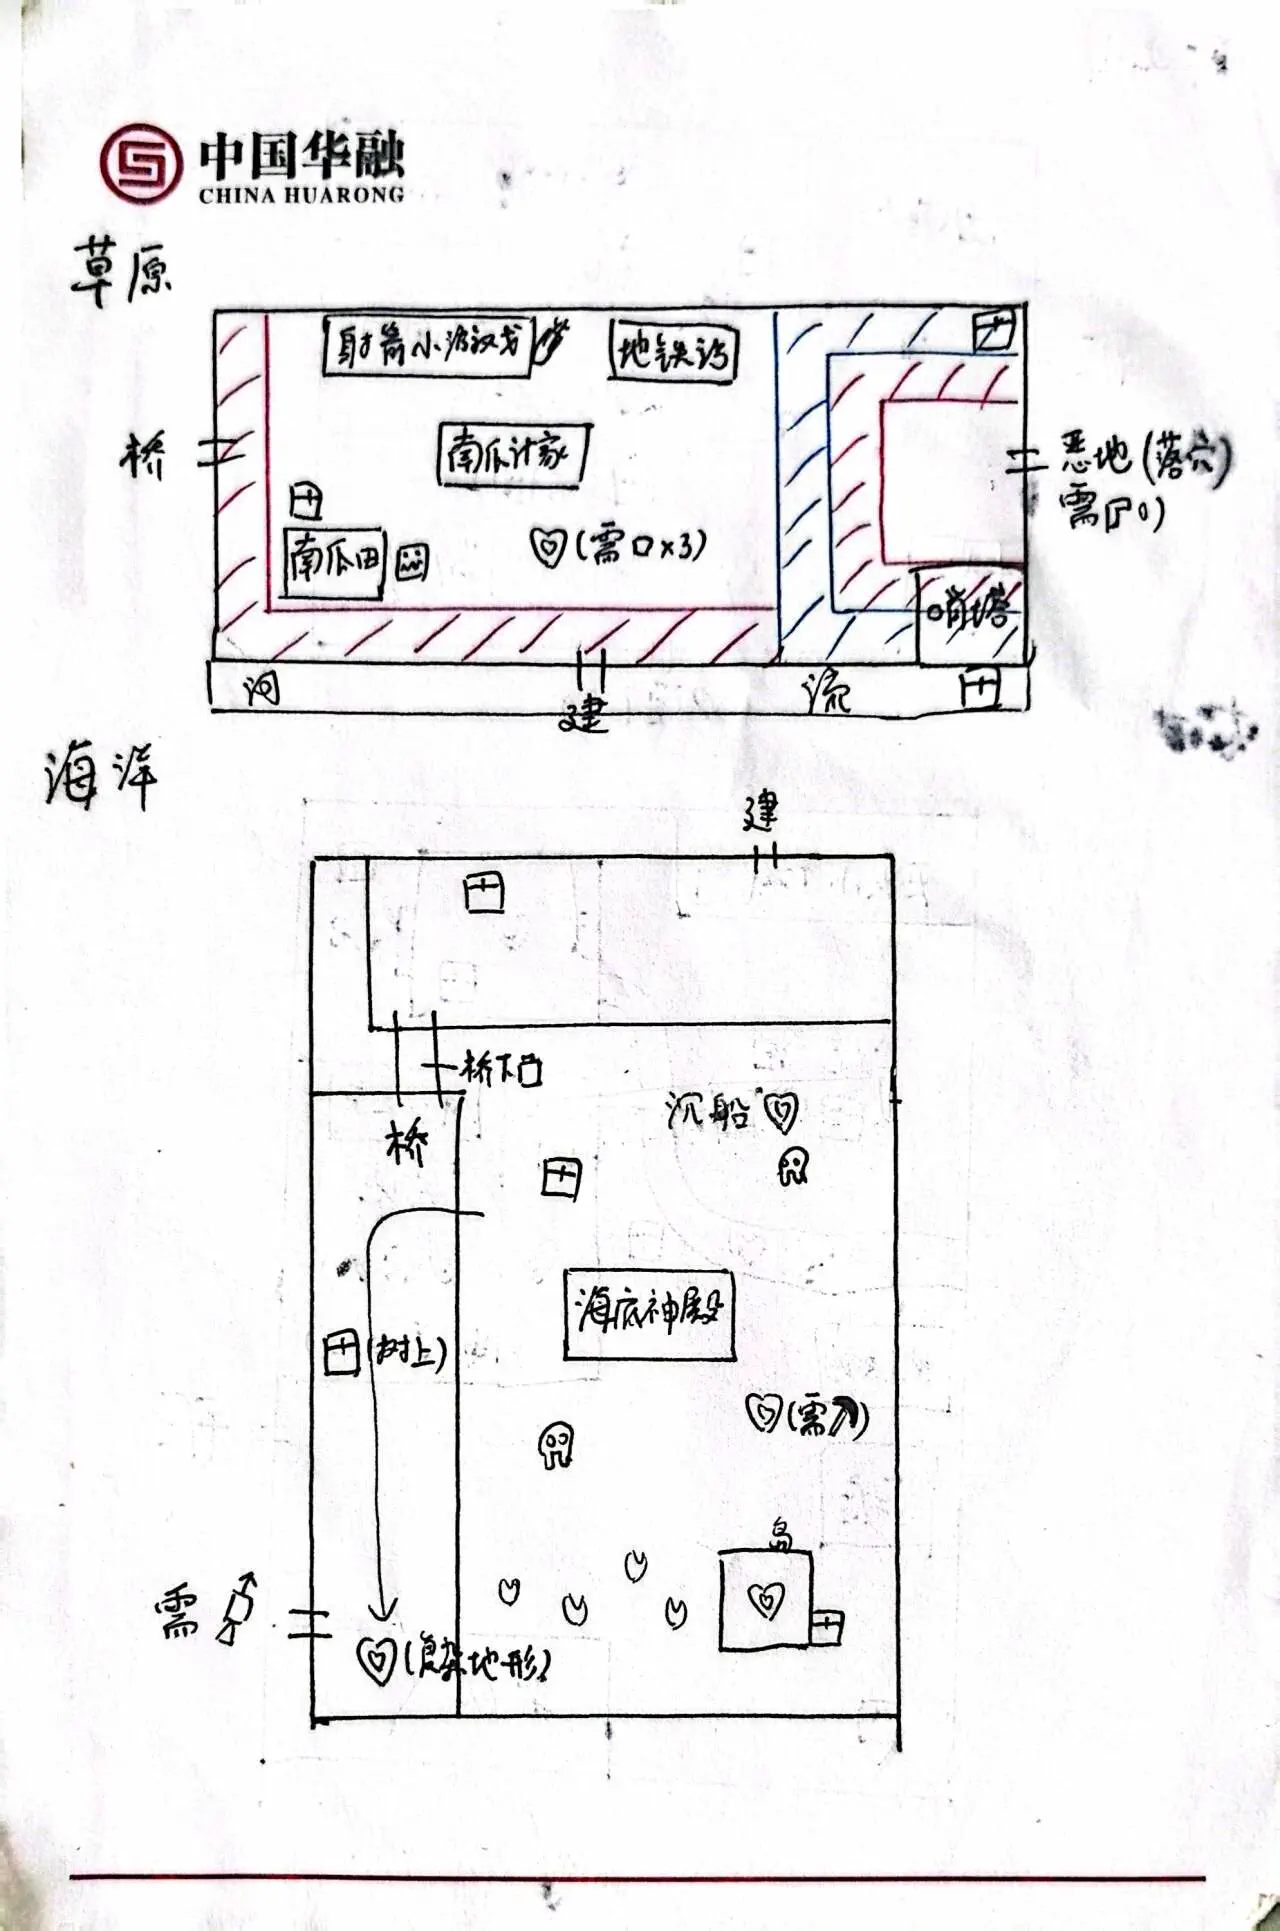 中国华融
CHINA HUARONG
草原
射箭小游戏
地铁站
桥
南瓜计家
恶地(落穴)
需
南瓜田
(需口x3)
哨塔
河
建
流
海洋
建
桥下
沉船
桥
海底神殿
(树上)
(需
岛
需
(复杂地形)